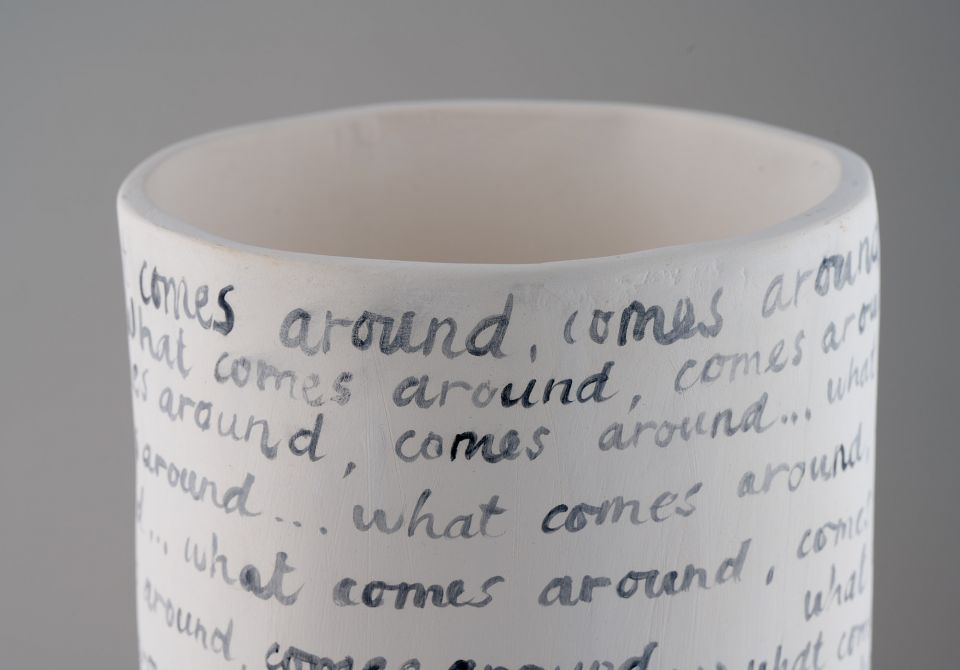 comes around, comes around
what comes around, comes arou
es around, comes around... what
around... what comes around,
... what comes around, come
around, comes around what
what com